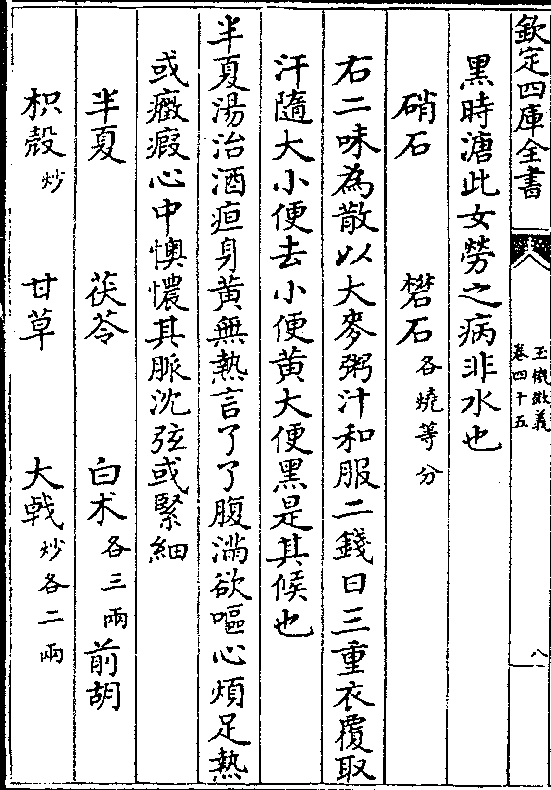 欽定四庫全書
玉機微義
卷四十五
八
黑時溏此女勞之病非水也
硝石 礬石各燒等分
右二味為散以大麥粥汁和服二錢日三重衣覆取
汗隨大小便去小便黄大便黑是其候也
半夏湯治酒疸身黄無熱言了了腹滿欲嘔心煩足熱
或癥瘕心中懊憹其脈沈弦或緊細
半夏 茯苓 白术各三兩 前胡
枳殼炒 甘草 大戟炒各二兩